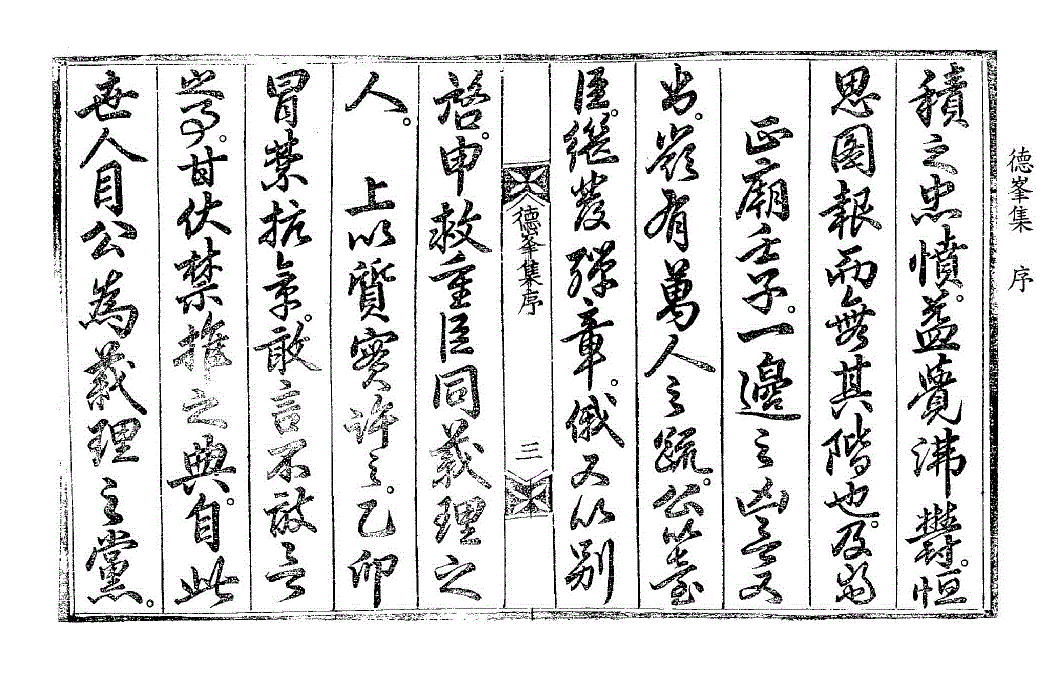 德峯集 序
積之忠憤。益覺沸鬱。恒
思圖報而無其階也。及當
正廟壬子。一邊之凶言又
出。嶺有萬人之疏。公以臺
臣。繼發彈章。俄又以別
德峯集序 三
啓。申救重臣同義理之
人。 上以質實許之。乙卯
冒禁抗章。敢言不敢言
之事。甘伏禁推之典。自此
世人目公為義理主黨。